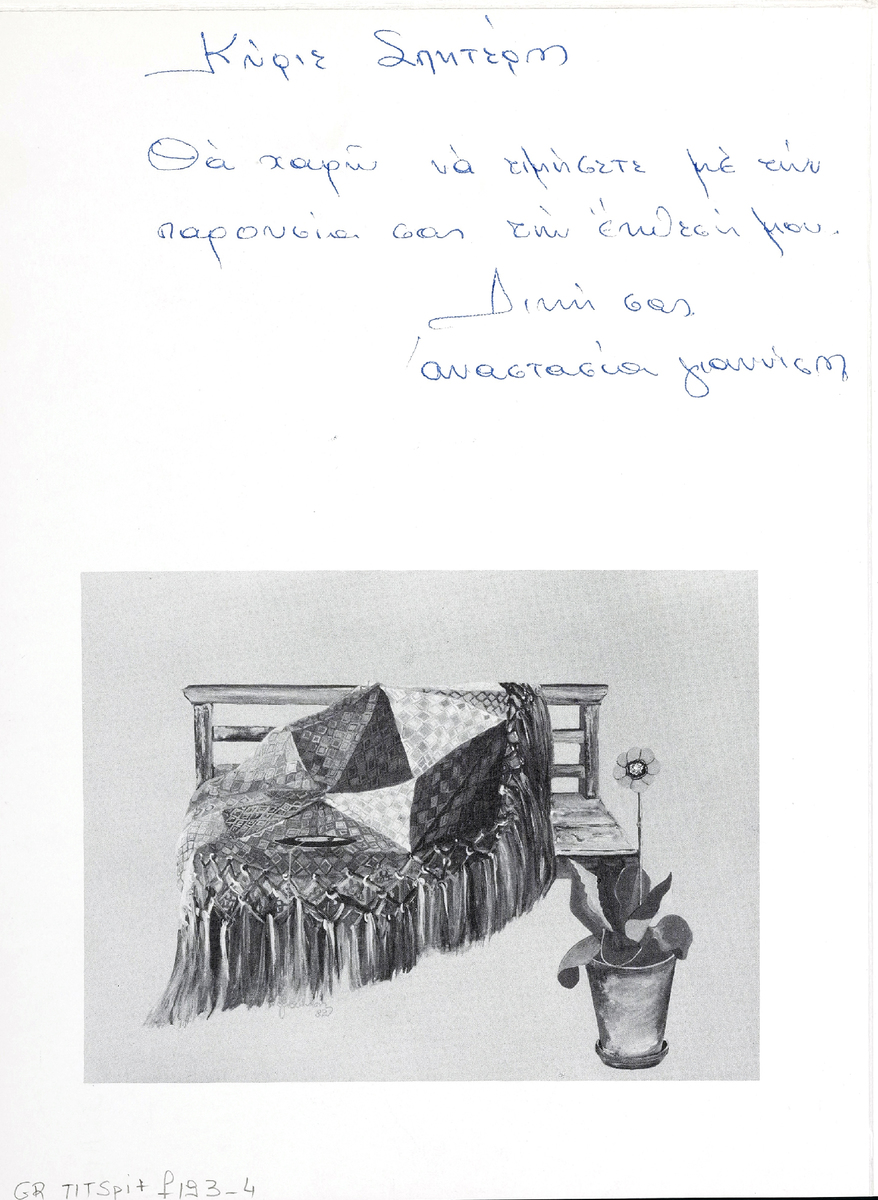 Κύριε Σπητέρη
Θὰ χαρῶ νὰ τιμήσετε μὲ τὴν
παρουσία σας τὴν ἔκθεσή μου.
Δική σας
Ἀναστασία Γιαννίση
GR TITSpit f193-4